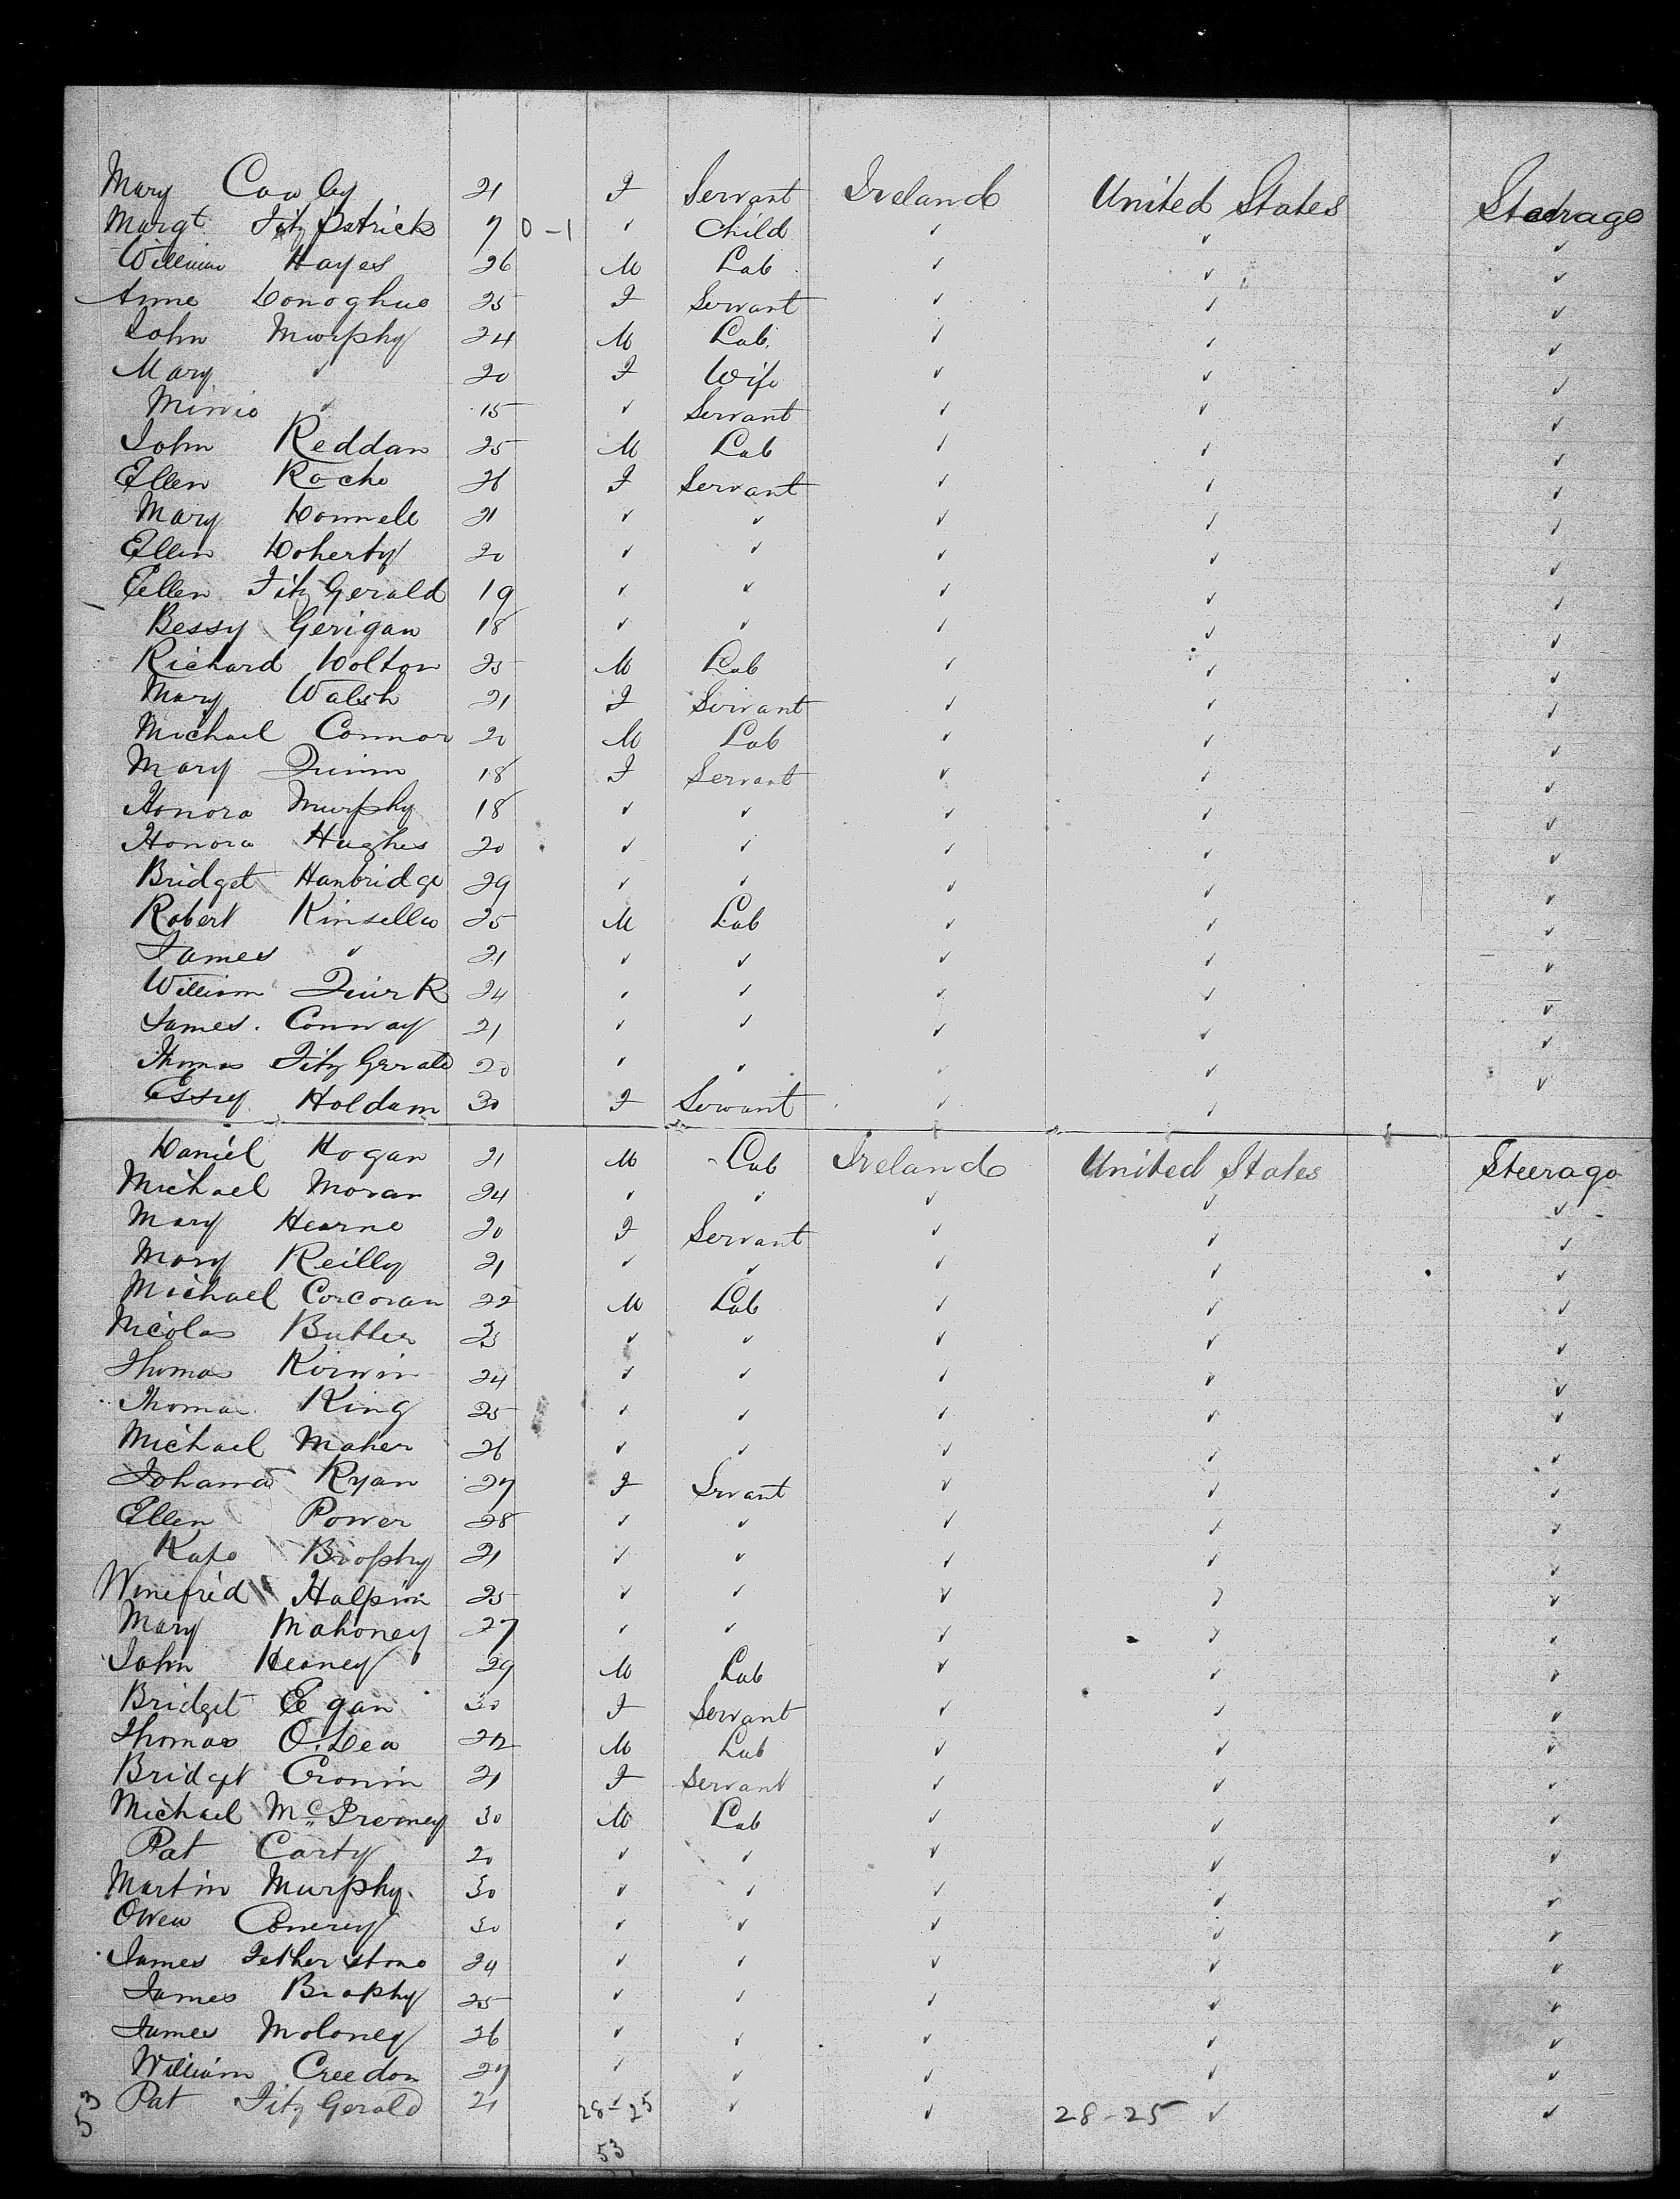 Mary Cowley 21 F Servant Ireland United States Steerage
Margt. Fitz Patrick 7 0-1 ✓ Child ✓ ✓ ✓
William Hayes 26 M Lab ✓ ✓ ✓
Anne Donoghue 25 F Servant ✓ ✓ ✓
John Murphy 24 M Lab. ✓ ✓ ✓
Mary ✓ 20 F Wife ✓ ✓ ✓
Minnie ✓ 15 ✓ Servant ✓ ✓ ✓
John Reddan 25 M Lab ✓ ✓ ✓
Ellen Roche 26 F Servant ✓ ✓ ✓
Mary Donnell 21 ✓ ✓ ✓ ✓ ✓
Ellen Doherty 20 ✓ ✓ ✓ ✓ ✓
Ellen Fitz Gerald 19 ✓ ✓ ✓ ✓ ✓
Bessy Gerigan 18 ✓ ✓ ✓ ✓ ✓
Richard Dolton 25 M Lab ✓ ✓ ✓
Mary Walsh 21 F Servant ✓ ✓ ✓
Michael Connor 20 M Lab ✓ ✓ ✓
Mary Quinn 18 F Servant ✓ ✓ ✓
Honora Murphy 18 ✓ ✓ ✓ ✓ ✓
Honora Hughes 20 ✓ ✓ ✓ ✓ ✓
Bridget Hanbridge 29 ✓ ✓ ✓ ✓ ✓
Robert Kinsella 25 M Lab ✓ ✓ ✓
James ✓ 21 ✓ ✓ ✓ ✓ ✓
William Quirk 24 ✓ ✓ ✓ ✓ ✓
James. Conway 21 ✓ ✓ ✓ ✓ ✓
Thomas Fitz Gerald 20 ✓ ✓ ✓ ✓ ✓
Essey Holdam 30 F Servant ✓ ✓
Daniel Hogan 21 M Lab Ireland United States Steerage
Michael Moran 24 ✓ ✓ ✓ ✓ ✓
Mary Hearne 20 F Servant ✓ ✓ ✓
Mary Reilly 21 ✓ ✓ ✓ ✓ ✓
Michael Corcoran 22 M Lab ✓ ✓ ✓
Nicolas Butler 23 ✓ ✓ ✓ ✓ ✓
Thomas Kirwin 24 ✓ ✓ ✓ ✓ ✓
Thomas King 25 ✓ ✓ ✓ ✓ ✓
Michael Maher 26 ✓ ✓ ✓ ✓ ✓
Johanna Ryan 27 F Srvant ✓ ✓ ✓
Ellen Power 28 ✓ ✓ ✓ ✓ ✓
Kate Brophy 21 ✓ ✓ ✓ ✓ ✓
Winefrid Halpin 25 ✓ ✓ ✓ ✓ ✓
Mary Mahoney 27 ✓ ✓ ✓ ✓ ✓
John Heaney 29 M Lab ✓ ✓ ✓
Bridget Egan 30 F Servant ✓ ✓ ✓
Thomas O.Dea 22 M Lab ✓ ✓ ✓
Bridget Cronin 21 F Servant ✓ ✓ ✓
Michael 30 M Lab ✓ ✓ ✓
Pat Carty 20 ✓ ✓ ✓ ✓ ✓
Martin Murphy. 30 ✓ ✓ ✓ ✓ ✓
Owen 30 ✓ ✓ ✓ ✓ ✓
James Fetherstone 24 ✓ ✓ ✓ ✓ ✓
James Brophy 25 ✓ ✓ ✓ ✓ ✓
James Moloney 26 ✓ ✓ ✓ ✓ ✓
William Creedon 27 ✓ ✓ ✓ ✓ ✓
53 Pat Fitz Gerald 21 28-25 ✓ ✓ 28-25 ✓ ✓
53